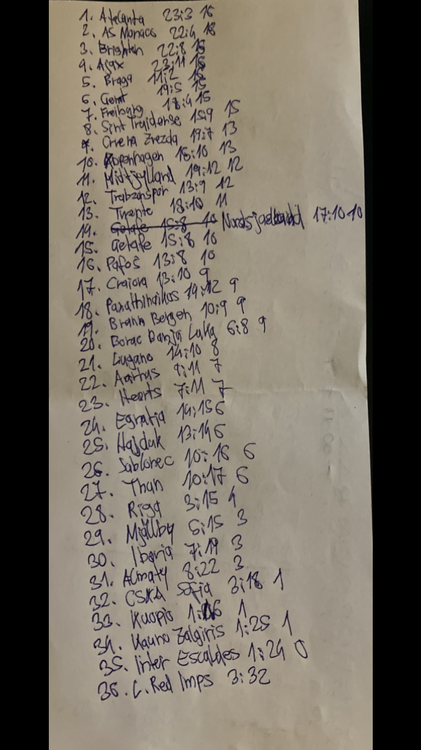 1. Atalanta 23:3 16
2. AS Monaco 22:4 18
3. Brighton 22:8 15
4. Ajax 23:11 15
5. Braga 11:2 15
6. Gent 19:5 15
7. Freiburg 18:4 15
8. Sint Truidense 15:9 15
9. Crvena Zvezda 19:7 13
10. Kopenhagen 18:10 13
11. Midtjylland 19:12 12
12. Trabzonspor 13:9 12
13. Twente 18:18 11
14. Getafe 15:8 10 Nordsjaelland 17:10 10
15. Getafe 15:8 10
16. Pafos 13:8 10
17. Craiova 13:10 9
18. Panathinaikos 14:12 9
19. Brann Bergen 10:9 9
20. Borac Banja Luka 6:8 9
21. Lugano 14:10 8
22. Aarhus 9:11 7
23. Hearts 7:11 7
24. Egnatia 14:15 6
25. Hajduk 13:14 6
26. Jablonec 10:16 6
27. Thun 10:17 6
28. Riga 3:15 4
29. Mjallby 6:15 3
30. Iberia 7:19 3
31. Almaty 8:22 3
32. CSKA Sofia 3:18 1
33. Kuopio 1:16 1
34. Kauno Zalgiris 1:25 1
35. Inter Escaldes 1:24 0
36. L. Red Imps 3:32